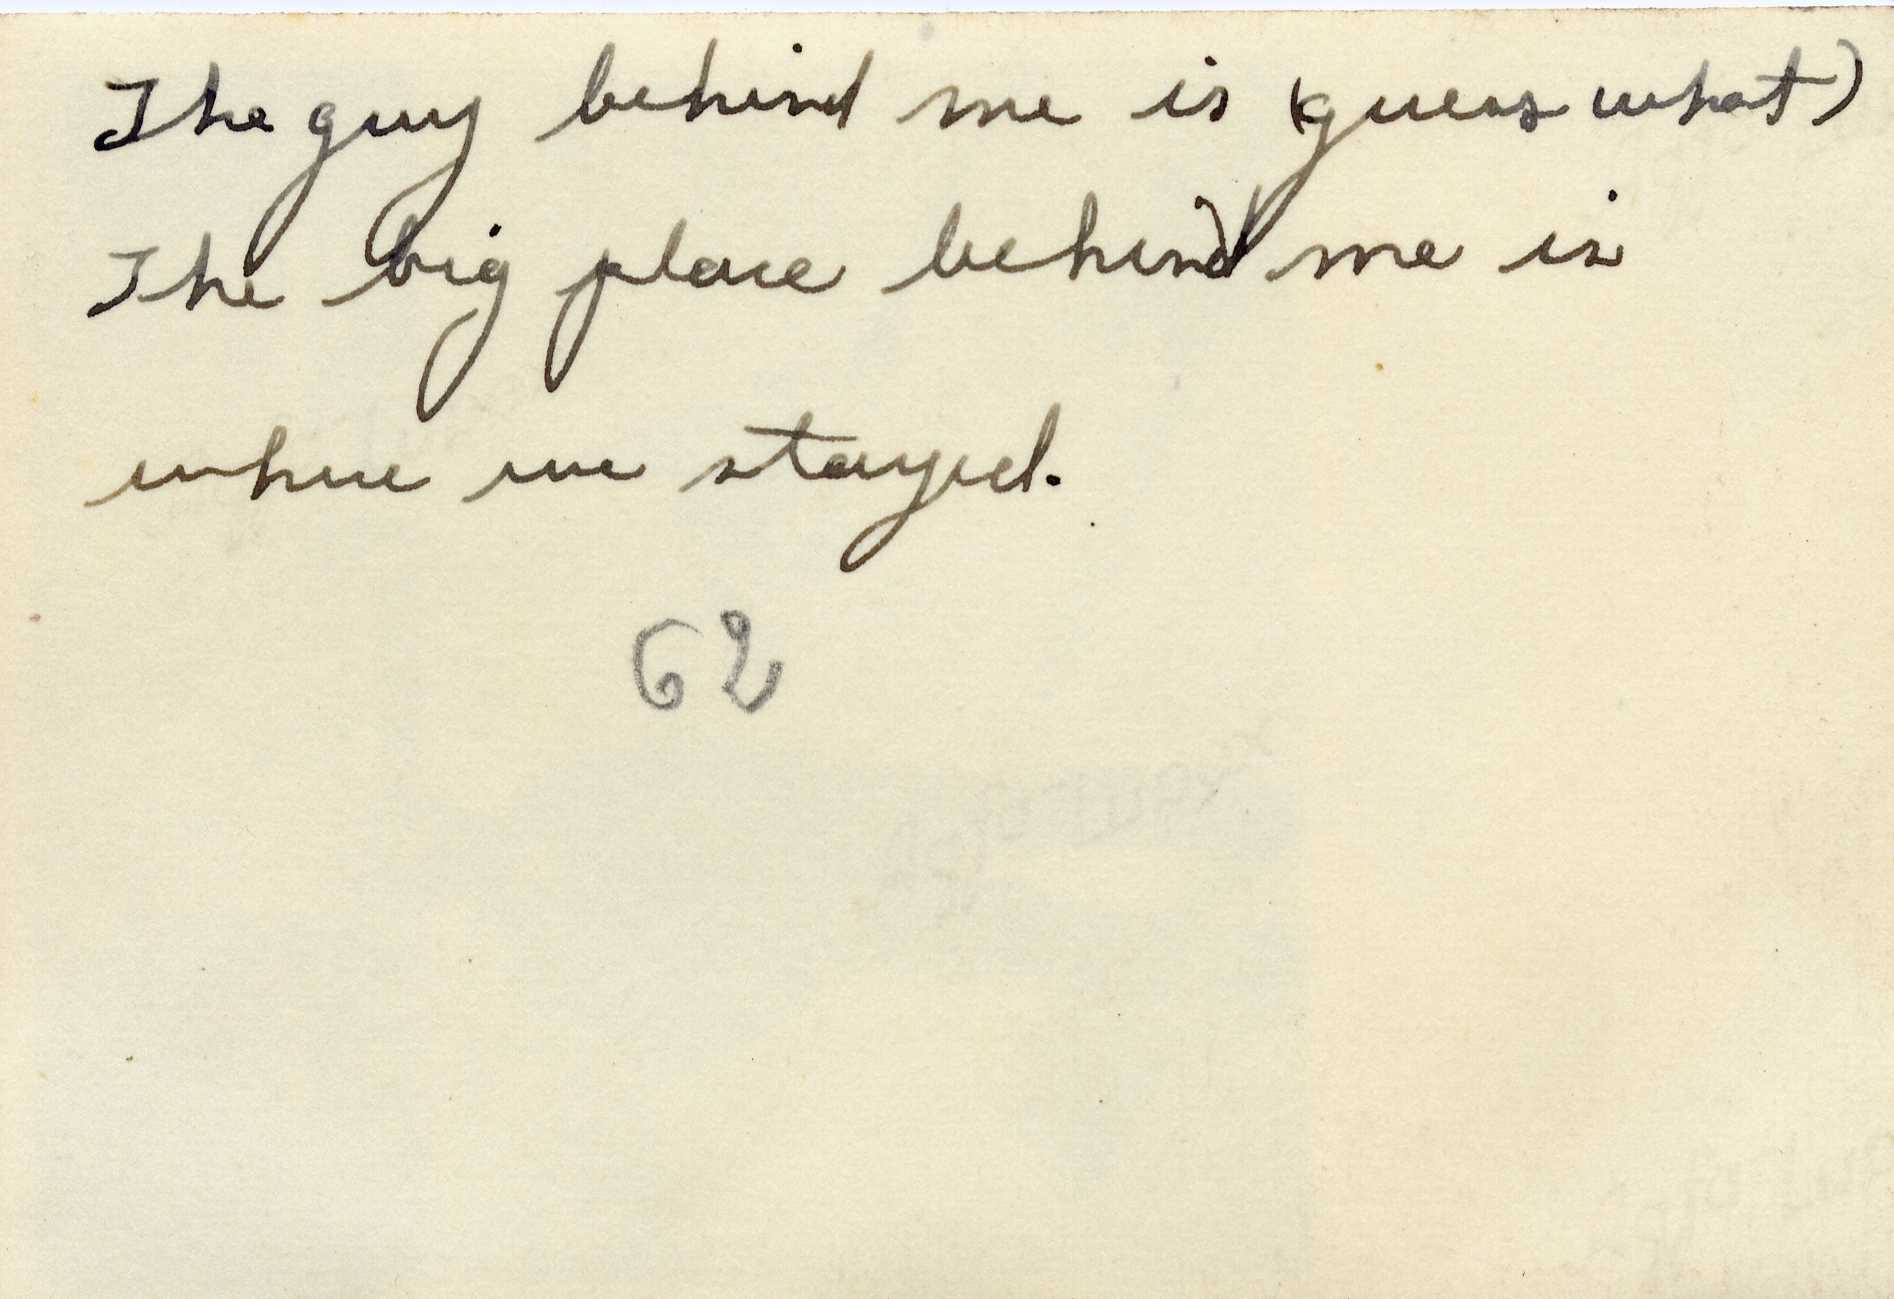 The guy behind me is (guess what)
The big place behind me is
where we stayed.
62